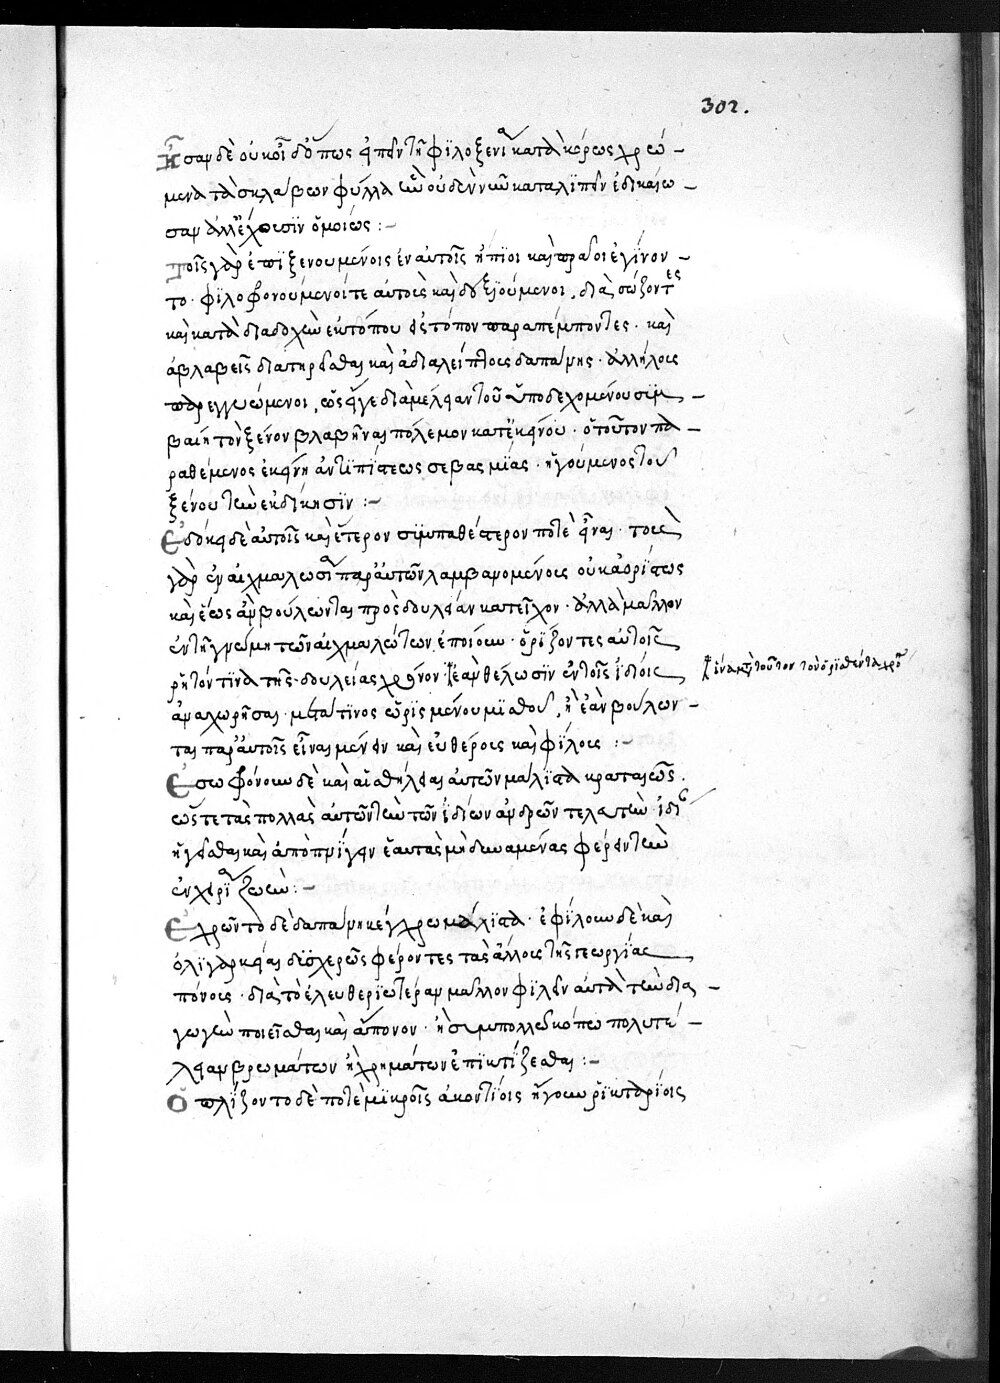 302.
Ἦσαν δὲ οὐκ οἶδ' ὅπως εἰπεῖν τῆ φιλοξενία κατακόρως χρώ-
μενα τὰ σκλάβων φύλλα ὧν οὐδὲν νῦν καταλιπεῖν ἐδικαίω-
σαν ἀλλ' ἔχουσιν ὁμοίως :-
Τοῖς γὰρ ἐπιξενουμένοις ἐν αὐτοῖς ἤπιοι καὶ πρᾶοι ἐγίνον-
το · φιλοφρονούμενοί τε αὐτοὺς καὶ δεξιούμενοι, διασώζοντες
καὶ κατὰ διαδοχὴν ἐκ τόπου εἰς τόπον παραπέμποντες · καὶ
ἀβλαβεῖς διατηρεῖσθαι καὶ ἀδιαλείπτοις δαπάνης · ἀλλήλοις
παρεγγυώμενοι, ὡς εἴγε διὰ μέλειαν τοῦ ὑποδεχομένου συμ-
βαίη τὸν ξένον βλαβῆναι πόλεμον κατ' ἐκείνου · ὁ τοῦτον πα-
ραθέμενος ἐκίνει ἀντὶ πίστεως σεβασμίας · ἡγούμενος τοῦ
ξένου τὴν ἐκδίκησιν :-
Ἐδόκει δὲ αὐτοῖς καὶ ἕτερον συμπαθέστερον ποτὲ εἶναι · τοὺς
γὰρ ἐν αἰχμαλωσία παρ' αὐτῶν λαμβανομένοις οὐκ ἀορίστως
καὶ ἕως ἂν βούλωνται πρὸς δουλείαν κατεῖχον · ἀλλὰ μᾶλλον
ἐν τῆ γνώμη τῶν αἰχμαλώτων ἐποίουν · ὁρίζοντες αὐτοῖς
ῥητόν τινα τῆς δουλείας χρόνον · ἐὰν θέλωσιν ἐν τοῖς ἰδίοις
ἵνα μετὰ τοῦτον τὸν ὁρισθέντα χρό
ἀναχωρῆσαι · μετά τινος ὡρισμένου μισθοῦ, ἢ ἐὰν βούλων-
ται παρ' αὐτοῖς εἶναι μένειν καὶ ἐλευθέροις καὶ φίλοις :-
Ἐσωφρόνουν δὲ καὶ αἱ θήλειαι αὐτῶν μάλιστα κραταιῶς ·
ὥστε τὰς πολλὰς αὐτῶν τὴν τῶν ἰδίων ἀνδρῶν τελευτὴν ἰδίου
ἡγεῖσθαι καὶ ἀποπνίγειν ἑαυτὰς μὴ δυναμένας φέρειν τὴν
ἐν χηρία ζωήν :-
Ἐχρῶντο δὲ δαπάνη κέγχρω μάλιστα · ἐφίλουν δὲ καὶ
ὀλιγάρκειαν δυσχερῶς φέροντες τὰς ἄλλοις τῆς γεωργίας
πόνοις · διὰ τὸ ἐλευθεριωτέραν μᾶλλον φιλεῖν αὐτὰ τὴν δια-
γωγὴν ποιεῖσθαι καὶ ἄπονον · ἢ σὺν πολλῶ κόπω πολυτέ-
λειαν βρωμάτων ἢ χρημάτων ἐπικτίζεσθαι :-
Ὁπλίζοντο δὲ ποτὲ μικροῖς ἀκοντίοις ἤγουν ῥικταρίοις